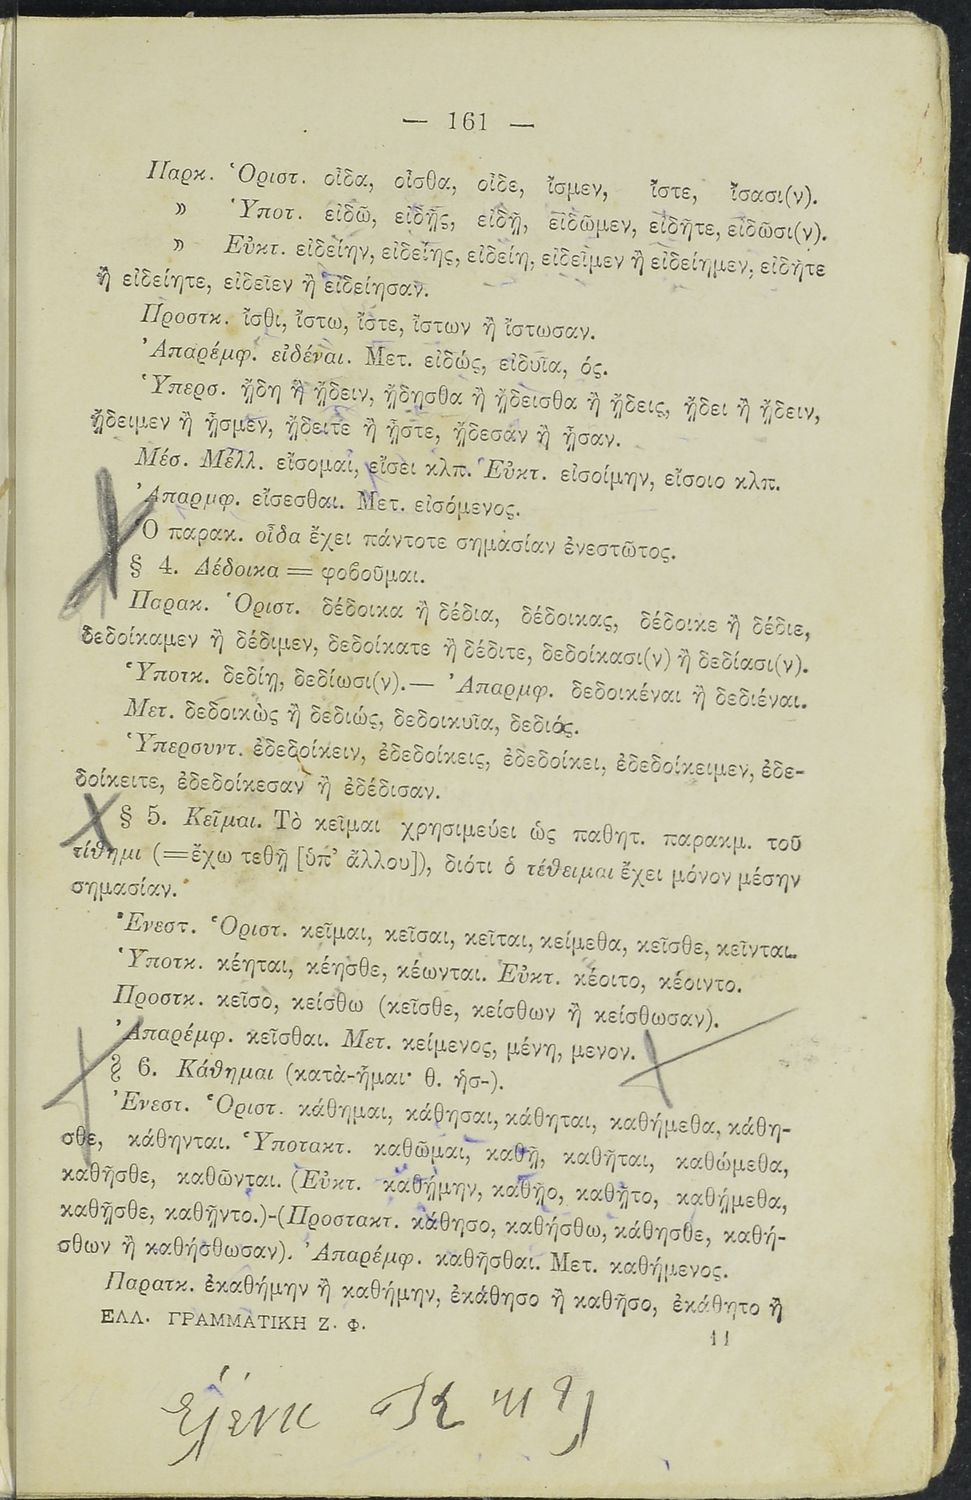 — 161 —
Παρκ. Ὁριστ. οἶδα, οἶσθα, οἶδε, ἴσμεν, ἴστε, ἴσασι(ν).
» Ὑποτ. εἰδῶ, εἰδῇς, εἰδῇ, εἰδῶμεν, εἰδῆτε, εἰδῶσι(ν).
» Εὐκτ. εἰδείην, εἰδείης, εἰδείη, εἰδεῖμεν ἢ εἰδείημεν, εἰδῆτε
ἢ εἰδείητε, εἰδεῖεν ἢ εἰδείησαν.
Προστκ. ἴσθι, ἴστω, ἴστε, ἴστων ἢ ἴστωσαν.
Ἀπαρέμφ. εἰδέναι. Μετ. εἰδώς, εἰδυῖα, ός.
Ὑπερσ. ᾔδη ἢ ᾔδειν, ᾔδησθα ἢ ᾔδεισθα ἢ ᾔδεις, ᾔδει ἢ ᾔδειν,
ᾔδειμεν ἢ ᾖσμεν, ᾔδειτε ἢ ᾖστε, ᾔδεσαν ἢ ᾖσαν.
Μέσ. Μέλλ. εἴσομαι, εἴσει κλπ. Εὐκτ. εἰσοίμην, εἴσοιο κλπ.
Ἀπαρμφ. εἴσεσθαι. Μετ. εἰσόμενος.
Ὁ παρακ. οἶδα ἔχει πάντοτε σημασίαν ἐνεστῶτος.
§ 4. Δέδοικα = φοβοῦμαι.
Παρακ. Ὁριστ. δέδοικα ἢ δέδια, δέδοικας, δέδοικε ἢ δέδιε,
δεδοίκαμεν ἢ δέδιμεν, δεδοίκατε ἢ δέδιτε, δεδοίκασι(ν) ἢ δεδίασι(ν).
Ὑποτκ. δεδίῃ, δεδίωσι(ν).— Ἀπαρμφ. δεδοικέναι ἢ δεδιέναι.
Μετ. δεδοικὼς ἢ δεδιώς, δεδοικυῖα, δεδιός.
Ὑπερσυντ. ἐδεδοίκειν, ἐδεδοίκεις, ἐδεδοίκει, ἐδεδοίκειμεν, ἐδε-
δοίκειτε, ἐδεδοίκεσαν ἢ ἐδέδισαν.
§ 5. Κεῖμαι. Τὸ κεῖμαι χρησιμεύει ὡς παθητ. παρακμ. τοῦ
τίθημι (=ἔχω τεθῆ [ὑπ' ἄλλου]), διότι ὁ τέθειμαι ἔχει μόνον μέσην
σημασίαν.
Ἐνεστ. Ὁριστ. κεῖμαι, κεῖσαι, κεῖται, κείμεθα, κεῖσθε, κεῖνται.
Ὑποτκ. κέηται, κέησθε, κέωνται. Εὐκτ. κέοιτο, κέοιντο.
Προστκ. κεῖσο, κείσθω (κεῖσθε, κείσθων ἢ κείσθωσαν).
Ἀπαρέμφ. κεῖσθαι. Μετ. κείμενος, μένη, μενον.
§ 6. Κάθημαι (κατὰ-ἧμαι· θ. ἡσ-).
Ἐνεστ. Ὁριστ. κάθημαι, κάθησαι, κάθηται, καθήμεθα, κάθη-
σθε, κάθηνται. Ὑποτακτ. καθῶμαι, καθῇ, καθῆται, καθώμεθα,
καθῆσθε, καθῶνται. (Εὐκτ. καθῄμην, καθῇο, καθῇτο, καθῄμεθα,
καθῇσθε, καθῇντο.)-(Προστακτ. κάθησο, καθήσθω, κάθησθε, καθή-
σθων ἢ καθήσθωσαν). Ἀπαρέμφ. καθῆσθαι. Μετ. καθήμενος.
Παρατκ. ἐκαθήμην ἢ καθήμην, ἐκάθησο ἢ καθῆσο, ἐκάθητο ἢ
ΕΛΛ. ΓΡΑΜΜΑΤΙΚΗ Ζ. Φ.
11